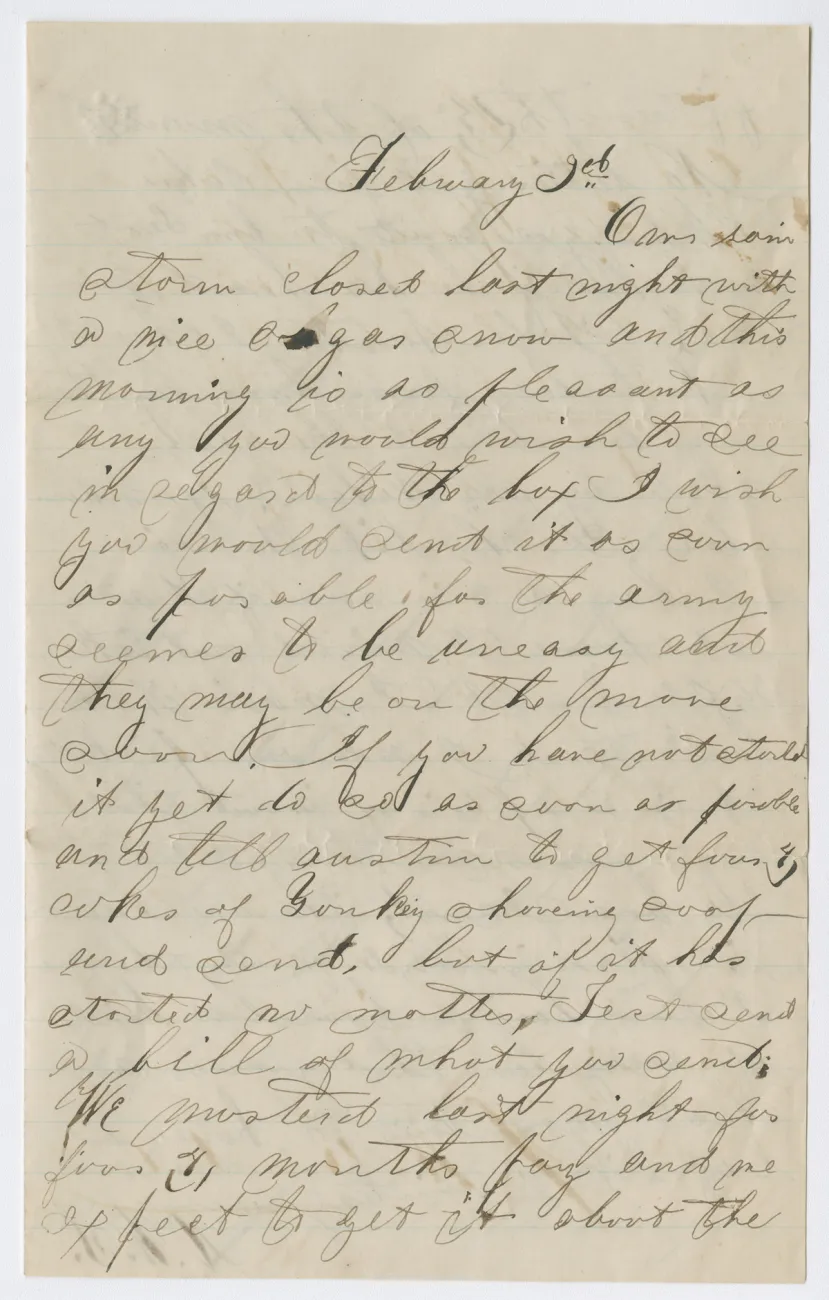 February 9eb
Our rain
storm closed last night with
a nice sugar snow and this
morning is as pleasant as
any you would wish to see
in regard to the box I wish
you would send it as soon
as posible for the army
seemes to be uneasy and
they may be on the move
soon. If you have not started
it yet do so as soon as posible
and tell austin to get four (4)
cakes of Yankey shaveing soap
and send, but if it has
started no matter, Test send
a bill of what you send;
We musterd last night for
four (4) months pay and we
expect to get it about the